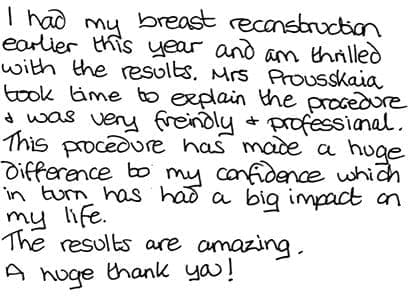 I had my breast reconstruction
earlier this year and am thrilled
with the results. Mrs Prousskaia
took time to explain the procedure
& was very freindly + professional.
This procedure has made a huge
difference to my confidence which
in turn has had a big impact on
my life.
The results are amazing.
A huge thank you!